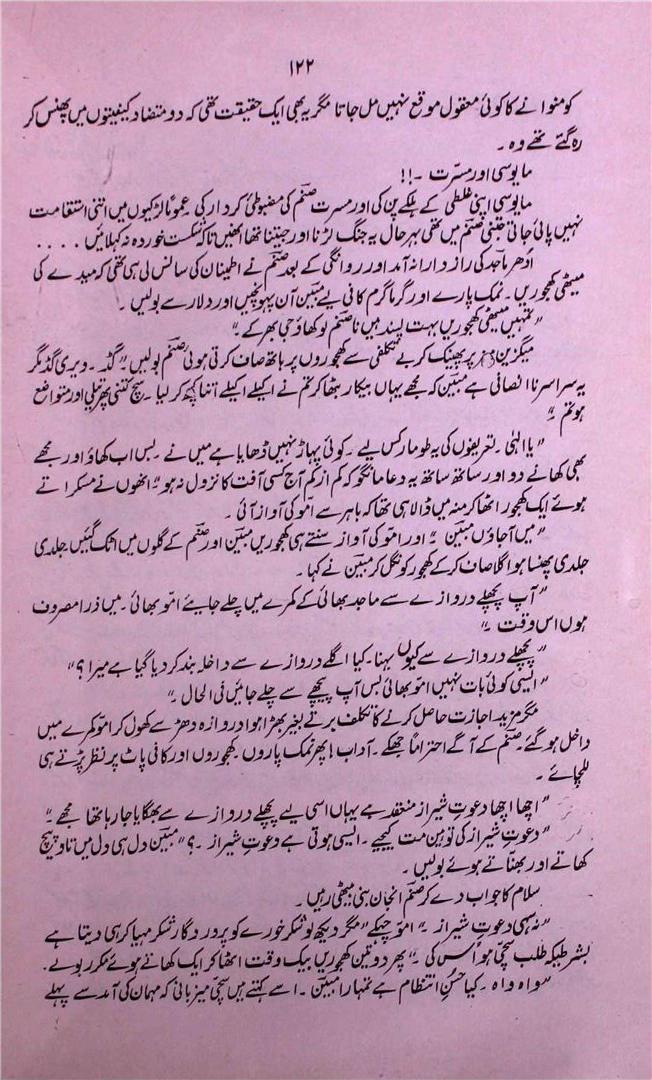 ۱۲۲
کو منوانے کا کوئی معقول موقع نہیں مل جاتا مگر یہ بھی ایک حقیقت تھی کہ دو متضاد کیفیتوں میں پھنس کر
رہ گئے تھے وہ ۔
مایوسی اور مسرّت ۔!!
مایوسی اپنی غلطی کے ہلکے پن کی اور مسرت صنم کی مضبوطئی کردار کی عموماً لڑکیوں میں اتنی استقامت
نہیں پائی جاتی جتنی صنم میں تھی بہرحال یہ جنگ لڑنا اور جیتنا تھا انھیں تاکہ شکست خوردہ نہ کہلائیں ....
اُدھر ماجد کی رازدارانہ آمد اور روانگی کے بعد صنم نے اطمینان کی سانس لی ہی تھی کہ میدے کی
میٹھی کھجوریں ۔ نمک پارے اور گرما گرم کافی لیے مبین آن پہونچیں اور دلار سے بولیں ۔
"تمہیں میٹھی کھجوریں بہت پسند ہیں نا صنم لو کھاؤ جی بھر کے ۔"
میگزین میز پر پھینک کر بے تکلفی سے کھجوروں پر ہاتھ صاف کرتی ہوئی صنم بولیں "گڈ ۔ ویری گڈ مگر
یہ سراسر ناانصافی ہے مبین کہ مجھے یہاں بیکار بٹھا کر تم نے اکیلے اکیلے اتنا کچھ کر لیا ۔ سچ کتنی پھرتیلی اور متواضع
ہو تم ۔"
"یا الٰہی ۔ تعریفوں کی یہ طومار کس لیے ۔ کوئی پہاڑ نہیں ڈھایا ہے میں نے ۔ بس اب کھاؤ اور مجھے
بھی کھانے دو اور ساتھ ساتھ یہ دعا مانگو کہ کم از کم آج کسی آفت کا نزول نہ ہو" انھوں نے مسکراتے
ہوئے ایک کھجور اٹھا کر منہ میں ڈالا ہی تھا کہ باہر سے امّو کی آواز آئی ۔
"میں آجاؤں مبین ۔" اور امّو کی آواز سنتے ہی کھجوریں مبین اور صنم کے گلوں میں اٹک گئیں جلدی
جلدی پھنسا ہوا گلا صاف کر کے کھجور کو نگل کر مبین نے کہا ۔
"آپ پچھلے دروازے سے ماجد بھائی کے کمرے میں چلے جایئے امّو بھائی ۔ میں ذرا مصروف
ہوں اس وقت ۔"
"پچھلے دروازے سے کیوں بہنا ۔ کیا اگلے دروازے سے داخلہ بند کر دیا گیا ہے میرا؟"
"ایسی کوئی بات نہیں امّو بھائی بس آپ پیچھے سے چلے جائیں فی الحال ۔"
مگر مزید اجازت حاصل کرنے کا تکلف برتے بغیر بھڑا ہوا دروازہ دھڑ سے کھول کر امّو کمرے میں
داخل ہو گئے ۔ صنم کے آگے احتراماً جھکے ۔ آداب! پھر نمک پاروں ۔ کھجوروں اور کافی پاٹ پر نظر پڑتے ہی
للچائے ۔
"اچھا اچھا دعوتِ شیراز منعقد ہے یہاں اسی لیے پچھلے دروازے سے بھگایا جا رہا تھا مجھے ۔"
"دعوتِ شیراز کی توہین مت کیجیے ۔ ایسی ہوتی ہے دعوتِ شیراز ۔؟" مبین دل ہی دل میں تاؤ پیچ
کھاتے اور بھناتے ہوئے بولیں ۔
سلام کا جواب دے کر صنم انجان بنی بیٹھی رہیں ۔
"نہ سہی دعوتِ شیراز ۔" امّو چہکے "مگر دیکھ لو شکر خورے کو پروردگار شکر مہیا کر ہی دیتا ہے
بشرطیکہ طلب سچی ہو اُس کی ۔" پھر دو تین کھجوریں بیک وقت اٹھا کر ایک کھاتے ہوئے مکرر بولے ۔
"واہ واہ ۔ کیا حسنِ انتظام ہے تمہارا مبین ۔ اسے کہتے ہیں سچی میزبانی کہ مہمان کی آمد سے پہلے